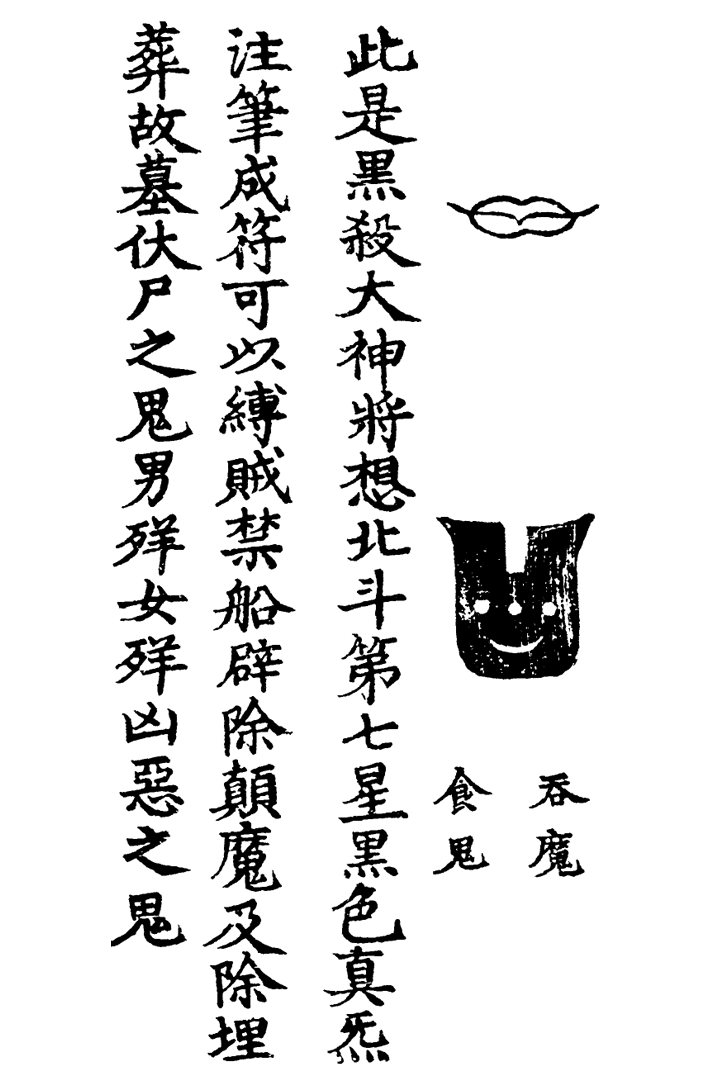 吞魔
食鬼
此是黑殺大神將想北斗第七星黑色真炁
注筆成符可以縛賊禁船辟除顛魔及除埋
葬故墓伏尸之鬼男𣧑女𣧑凶惡之鬼